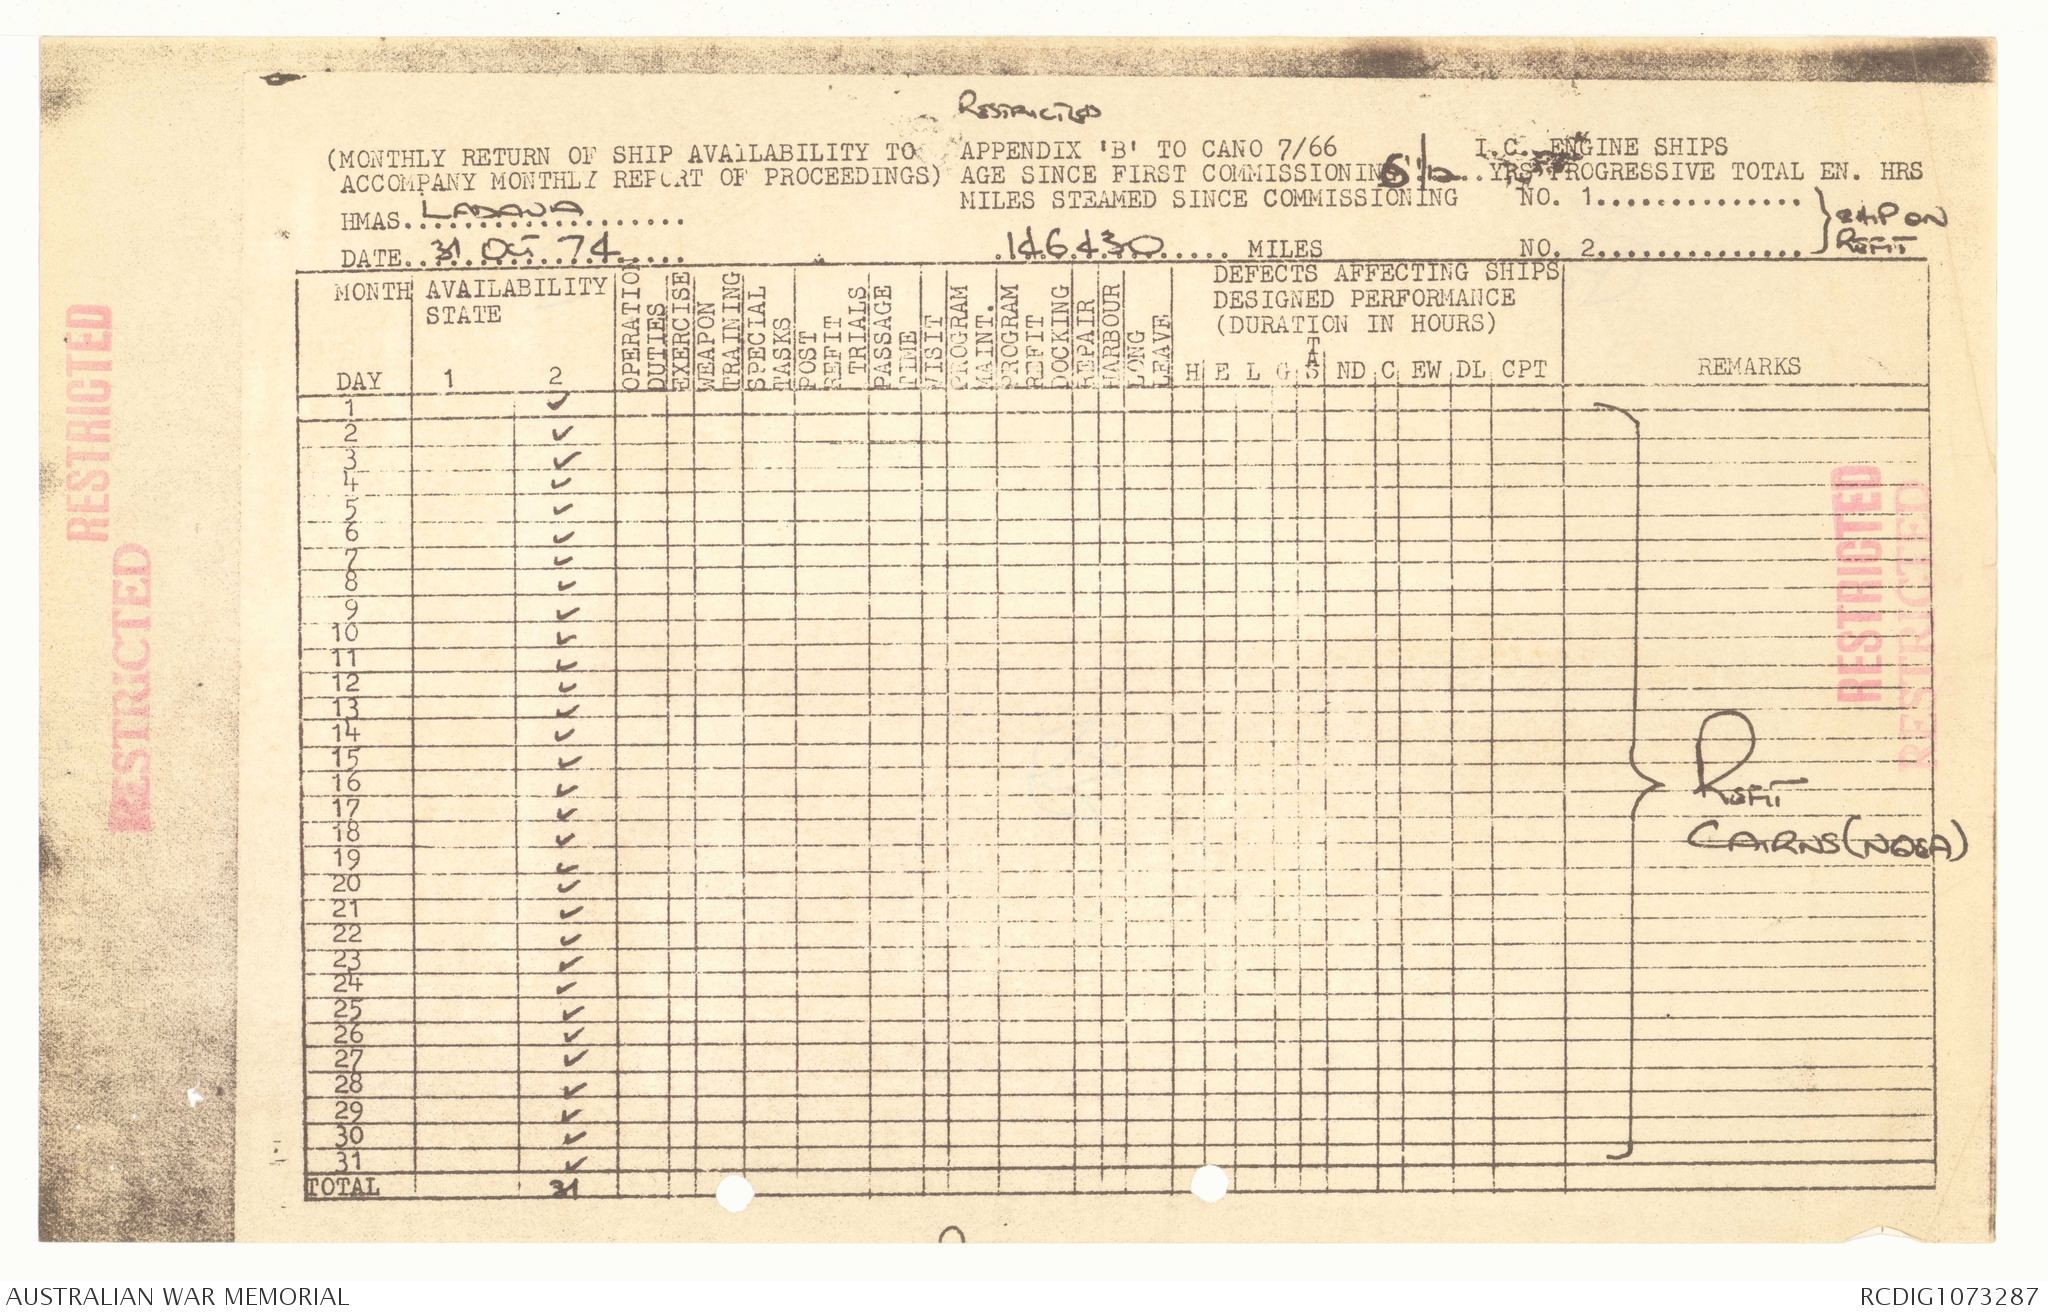 RESTRICTED
(MONTHLY RETURN OF SHIP AVAILABILITY TO
ACCOMPANY MONTHLY REPORT OF PROCEEDINGS)
HMAS. LADAVA
DATE. 31 OCT 74
APPENDIX 'B' TO CANO 7/66
AGE SINCE FIRST COMMISSIONING 6 YRS
MILES STEAMED SINCE COMMISSIONING
146430 MILES
I.C. ENGINE SHIPS
PROGRESSIVE TOTAL EN. HRS
NO. 1
NO. 2
SHIP ON
REFIT
MONTH
DAY
AVAILABILITY
STATE
1 2
OPERATION
DUTIES
EXERCISE
WEAPON
TRAINING
SPECIAL
TASKS
POST
REFIT
TRIALS
PASSAGE
TIME
VISIT
PROGRAM
MAINT.
PROGRAM
REFIT
DOCKING
REPAIR
HARBOUR
LONG
LEAVE
DEFECTS AFFECTING SHIPS
DESIGNED PERFORMANCE
(DURATION IN HOURS)
H E L G TAS ND C EW DL CPT
REMARKS
1 ✓
2 ✓
3 ✓
4 ✓
5 ✓
6 ✓
7 ✓
8 ✓
9 ✓
10 ✓
11 ✓
12 ✓
13 ✓
14 ✓
15 ✓
16 ✓
17 ✓
18 ✓
19 ✓
20 ✓
21 ✓
22 ✓
23 ✓
24 ✓
25 ✓
26 ✓
27 ✓
28 ✓
29 ✓
30 ✓
31 ✓
TOTAL 31
REFIT
CAIRNS (NQEA)
RESTRICTED
RESTRICTED
RESTRICTED
RESTRICTED
AUSTRALIAN WAR MEMORIAL
RCDIG1073287